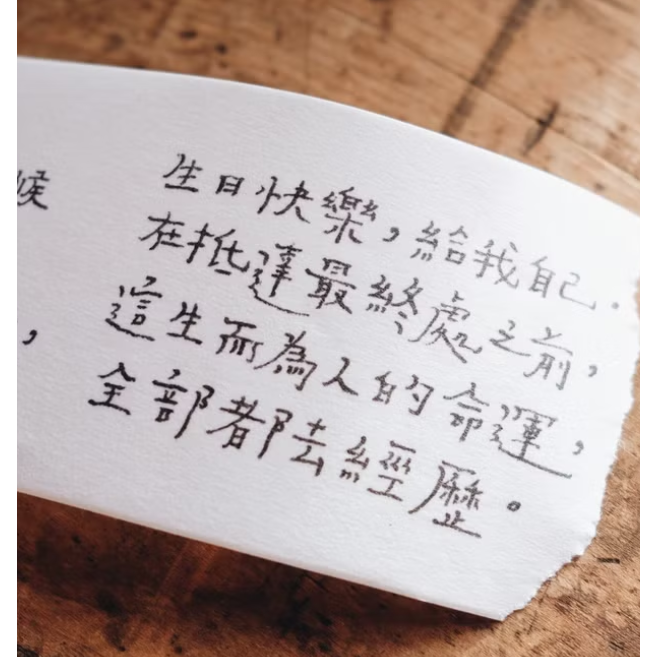 候
生日快樂，給我自己．
在抵達最終處之前，
，
這生而為人的命運，
全部都去經歷。